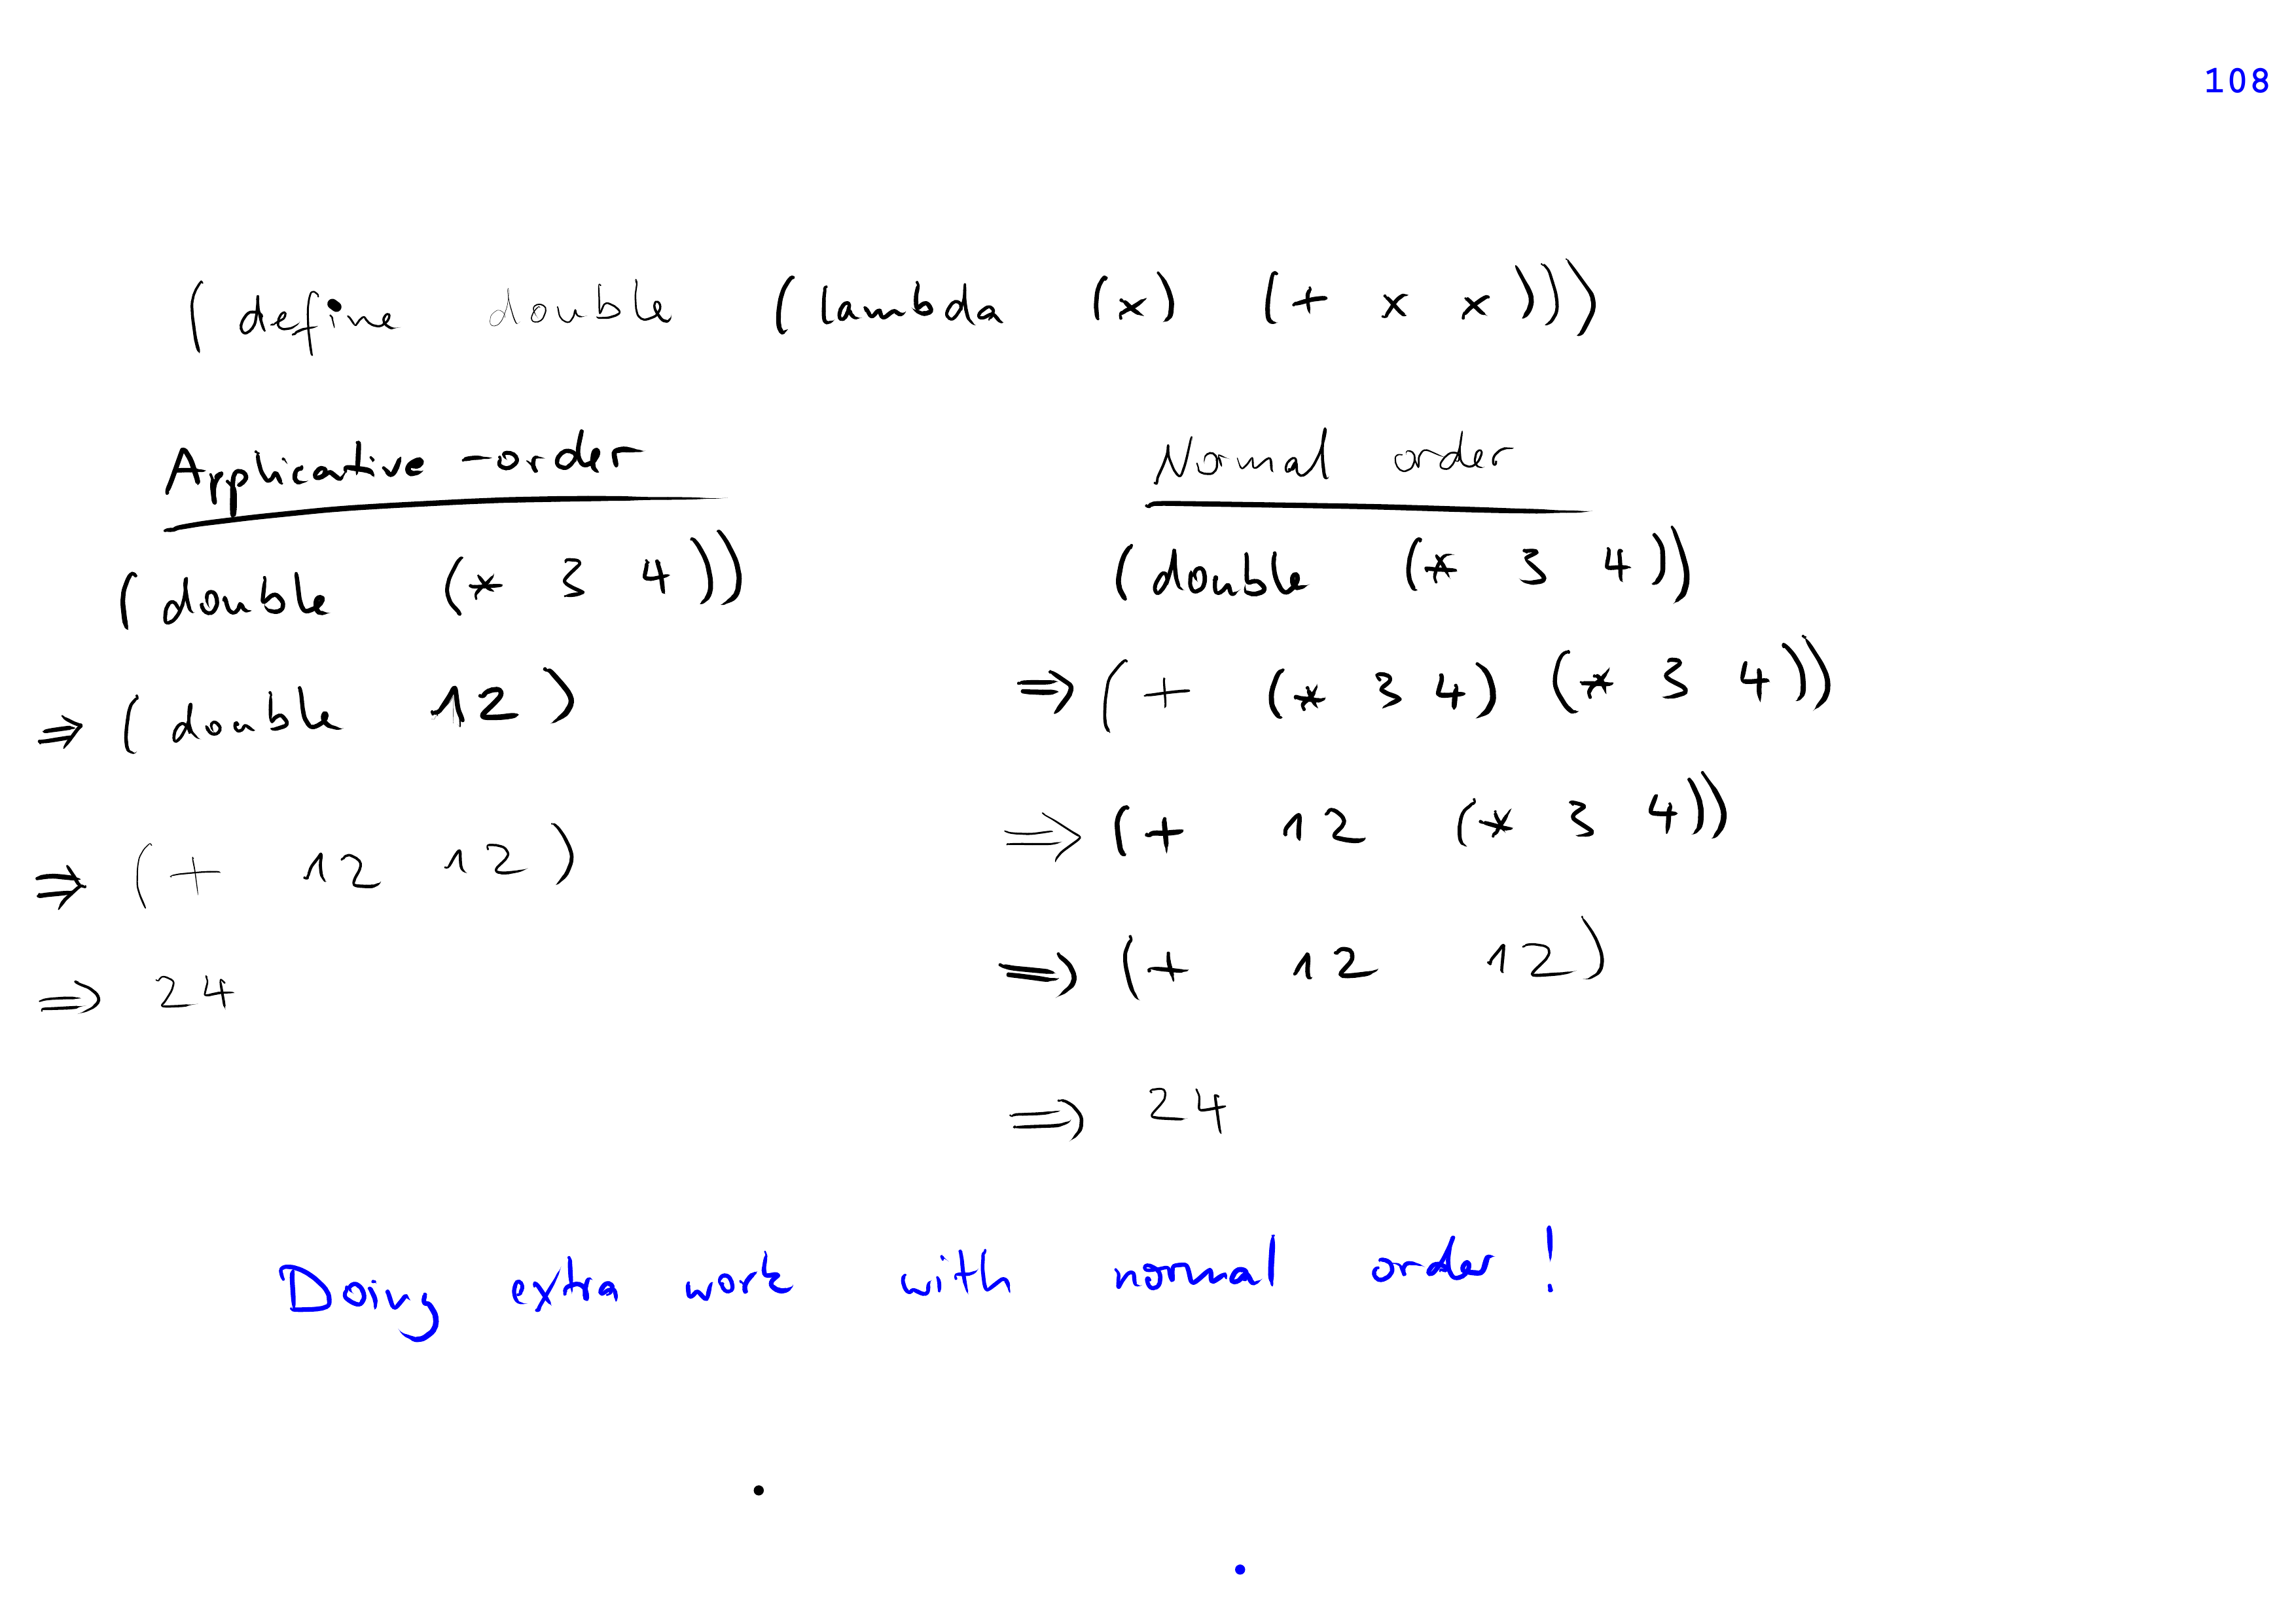 108
(define double (lambda (x) (+ x x)))
Applicative-order
(double (* 3 4))
⇒ (double 12)
⇒ (+ 12 12)
⇒ 24
Normal order
(double (* 3 4))
⇒ (+ (* 3 4) (* 3 4))
⇒ (+ 12 (* 3 4))
⇒ (+ 12 12)
⇒ 24
Doing extra work with normal order!